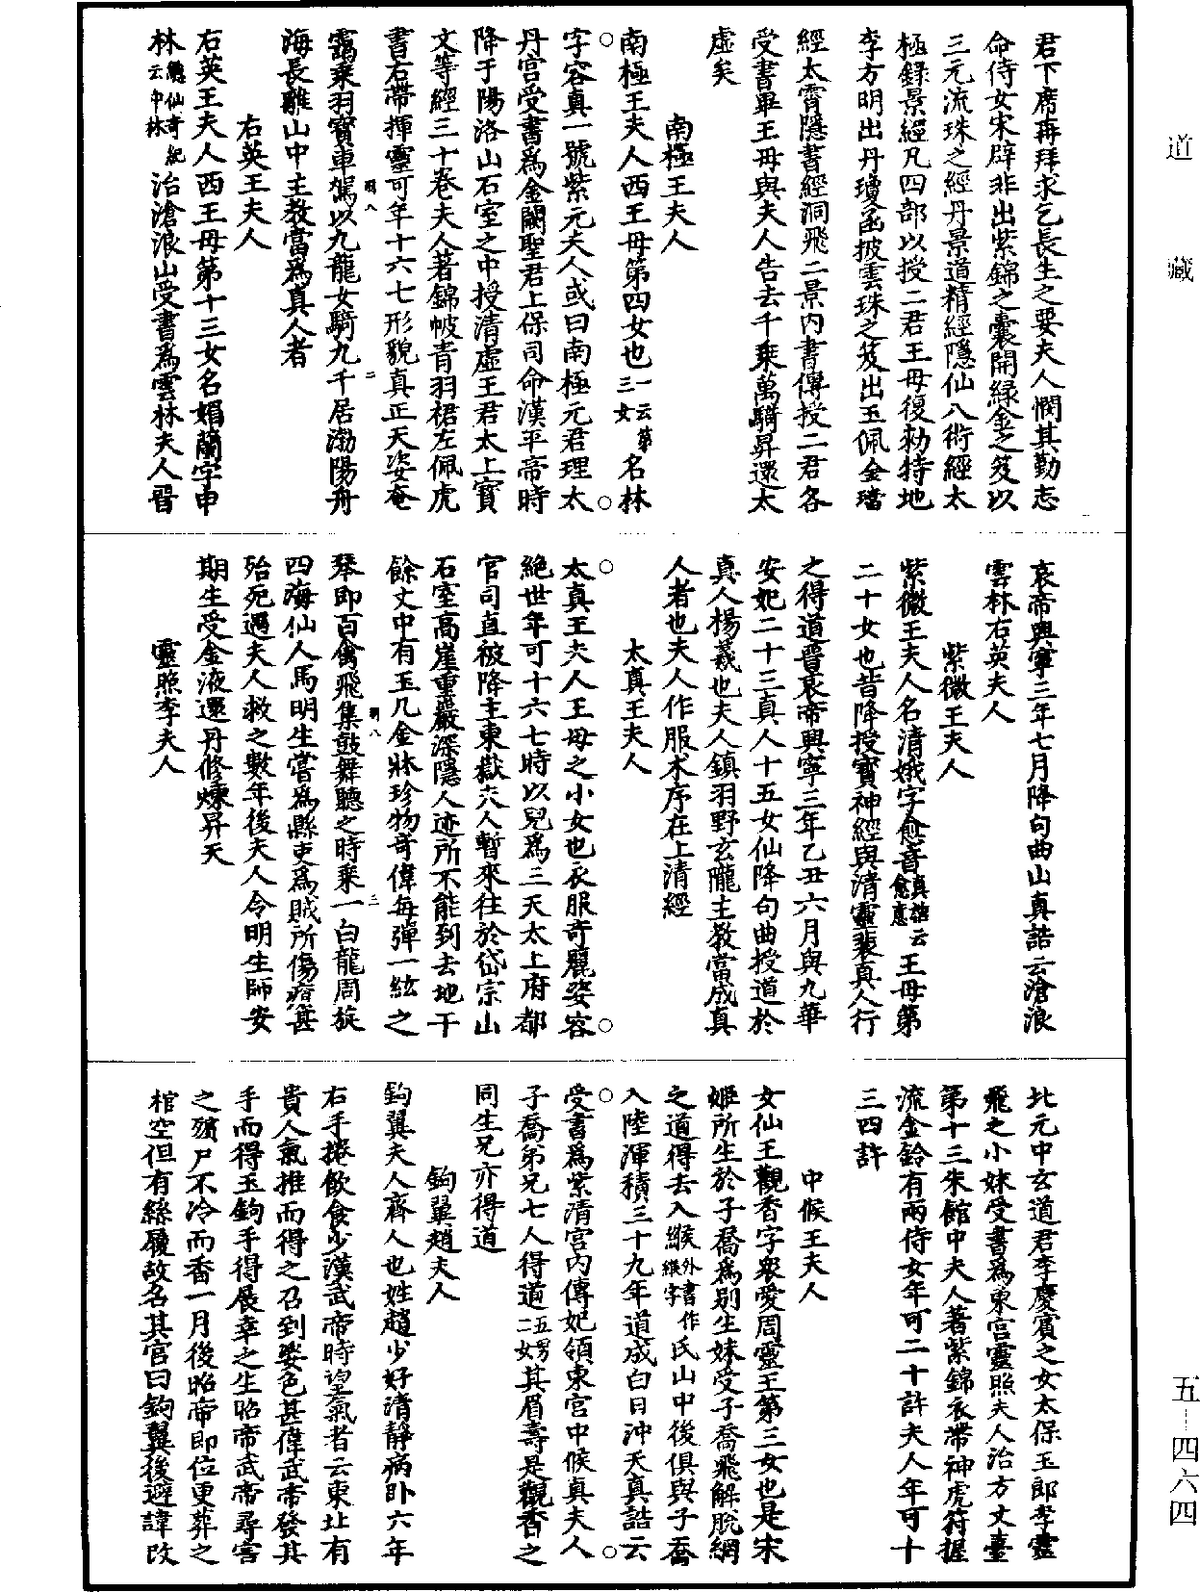 道藏
君下席再拜求乞長生之要夫人憫其勤志
命侍女宋辟非出紫錦之囊開綠金之笈以
三元流珠之經丹景道精經隱仙八術經太
極錄景經凡四部以授二君王母復勑特地
李方明出丹瓊函披雲珠之笈出玉佩金璫
經太霄隱書經洞飛二景內書傳授二君各
受書畢王母與夫人告去千乘萬騎昇還太
虛矣
南極王夫人
南極王夫人西王母第四女也一云第三女名林
字容真一號紫元夫人或曰南極元君理太
丹宮受書爲金闕聖君上保司命漢平帝時
降于陽洛山石室之中授清虛王君太上寶
文等經三十卷夫人著錦帔青羽裙左佩虎
書右帶揮靈可年十六七形貌真正天姿奄
靄乘羽寶車駕以九龍女騎九千居渤陽舟
海長離山中主教當爲真人者
右英王夫人
右英王夫人西王母第十三女名媚蘭字申
林總仙奇紀云中林治滄浪山受書爲雲林夫人晉
哀帝興寧三年七月降句曲山真誥云滄浪
雲林右英夫人
紫微王夫人
紫微王夫人名清娥字愈音真誥云愈意王母第
二十女也昔降授寶神經與清靈裴真人行
之得道晉哀帝興寧三年乙丑六月與九華
安妃二十三真人十五女仙降句曲授道於
真人楊羲也夫人鎮羽野玄隴主教當成真
人者也夫人作服术序在上清經
太真王夫人
太真王夫人王母之小女也衣服奇麗姿容
絕世年可十六七時以兒爲三天太上府都
官司直被降主東嶽夫人暫來往於岱宗山
石室高崖重巖深隱人迹所不能到去地千
餘丈中有玉几金牀珍物奇偉每彈一絃之
琴即百禽飛集鼓舞聽之時乘一白龍周旋
四海仙人馬明生嘗爲縣吏爲賊所傷瘡甚
殆死遇夫人救之數年後夫人令明生師安
期生受金液還丹修煉昇天
靈照李夫人
北元中玄道君李慶賓之女太保玉郎李靈
飛之小妹受書爲東宮靈照夫人治方丈臺
第十三朱館中夫人著紫錦衣帶神虎符握
流金鈴有兩侍女年可二十許夫人年可十
三四許
中候王夫人
女仙王觀香字衆愛周靈王第三女也是宋
姬所生於子喬爲別生妹受子喬飛解脫網
之道得去入緱外書作緱字氏山中後俱與子喬
入陸渾積三十九年道成白日沖天真誥云
受書爲紫清宮內傳妃領東宮中候真夫人
子喬弟兄七人得道五男二女其眉壽是觀香之
同生兄亦得道
鉤翼趙夫人
鉤翼夫人齊人也姓趙少好清靜病臥六年
右手捲飲食少漢武帝時望氣者云東北有
貴人氣推而得之召到姿色甚偉武帝發其
手而得玉鉤手得展幸之生昭帝武帝尋害
之殯尸不冷而香一月後昭帝即位更葬之
棺空但有絲履故名其宮曰鉤翼後避諱改
五—四六四